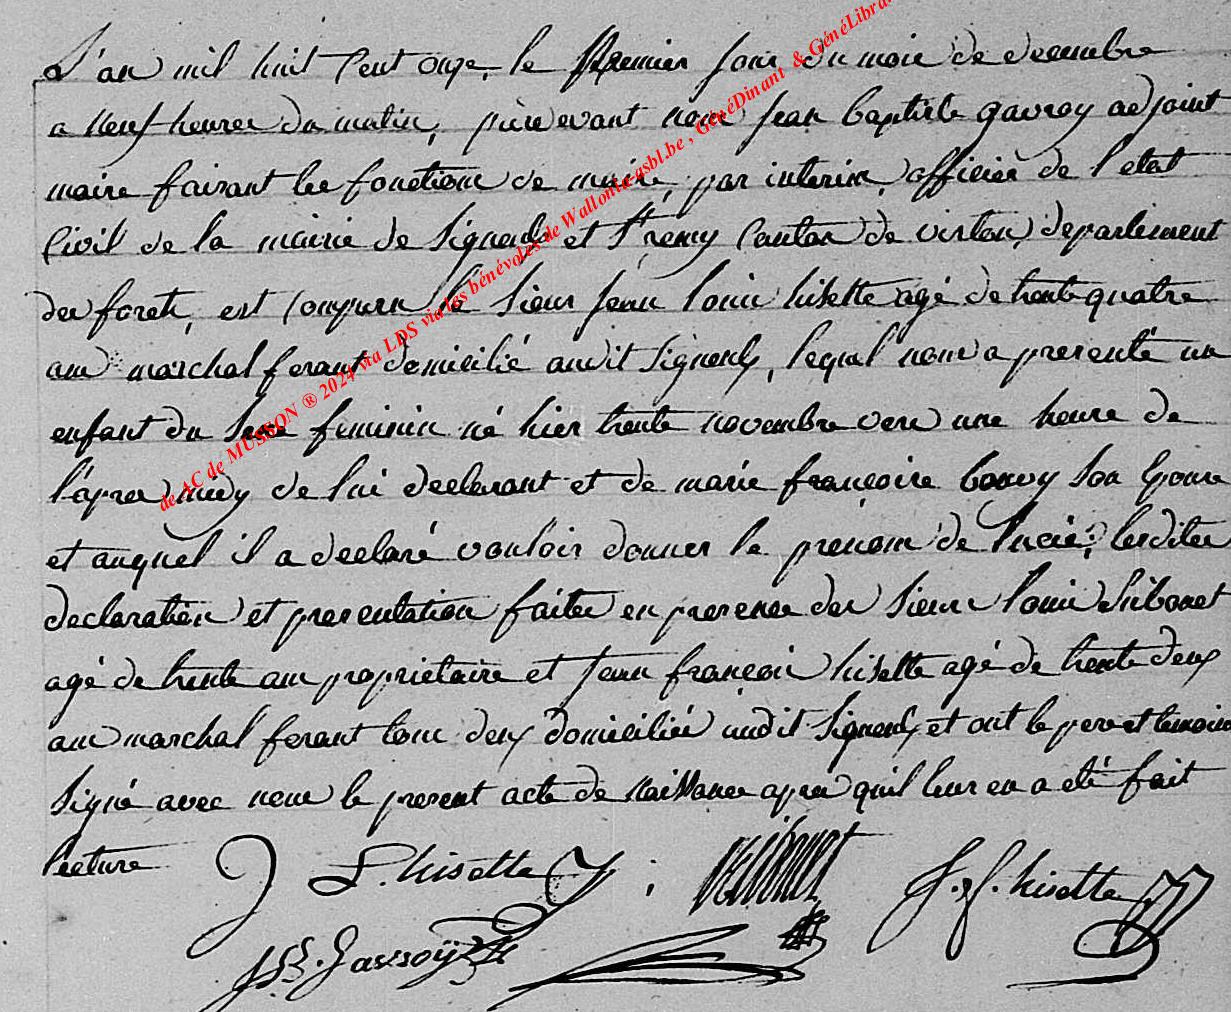 L'an mil huit Cent onze, le premier jour du mois de decembre
a neuf heures du matin, pardevant nous jean baptiste gavroy adjoint
maire faisant les fonctions de maire, par interim, officier de l'etat
Civil de la mairie de Signeulx et St remy Canton de virton, departement
des forets, est comparu le Sieur jean louis hisette agé de trente quatre
ans marchal ferant domicilié audit Signeulx, lequel nous a presenté un
enfant du Sexe feminin né hier trente novembre vers une heure de
l'apres midy de lui declarant et de marie françoise bouvy son Epouse
et auquel il a declaré vouloir donner le prenom de lucie, lesdites
declaration et presentation faites en presence des Sieurs louis
agé de trente ans proprietaire et jean françois hisette agé de trente deux
ans marchal ferant tous deux domiciliés audit Signeulx et ont le pere et temoins
Signé avec nous le present acte de naissance apres qu'il leur en a été fait
lecture
J L. hisette J. f. hisette
JB. Gavroÿ
de AC de MUSSON ® 2024 via LDS via les bénévoles de Wallonia-asbl.be , GénéDinant & GénéLibra